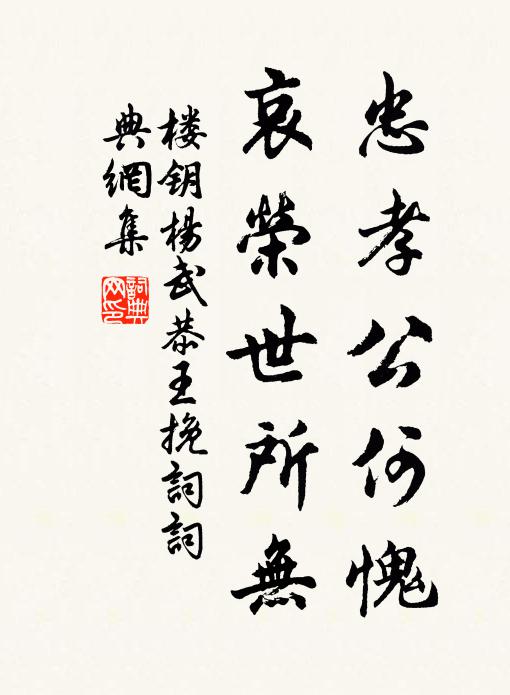 忠孝公何愧
哀榮世所無
楼钥杨武恭王挽詞詞
典網集
詞典網印